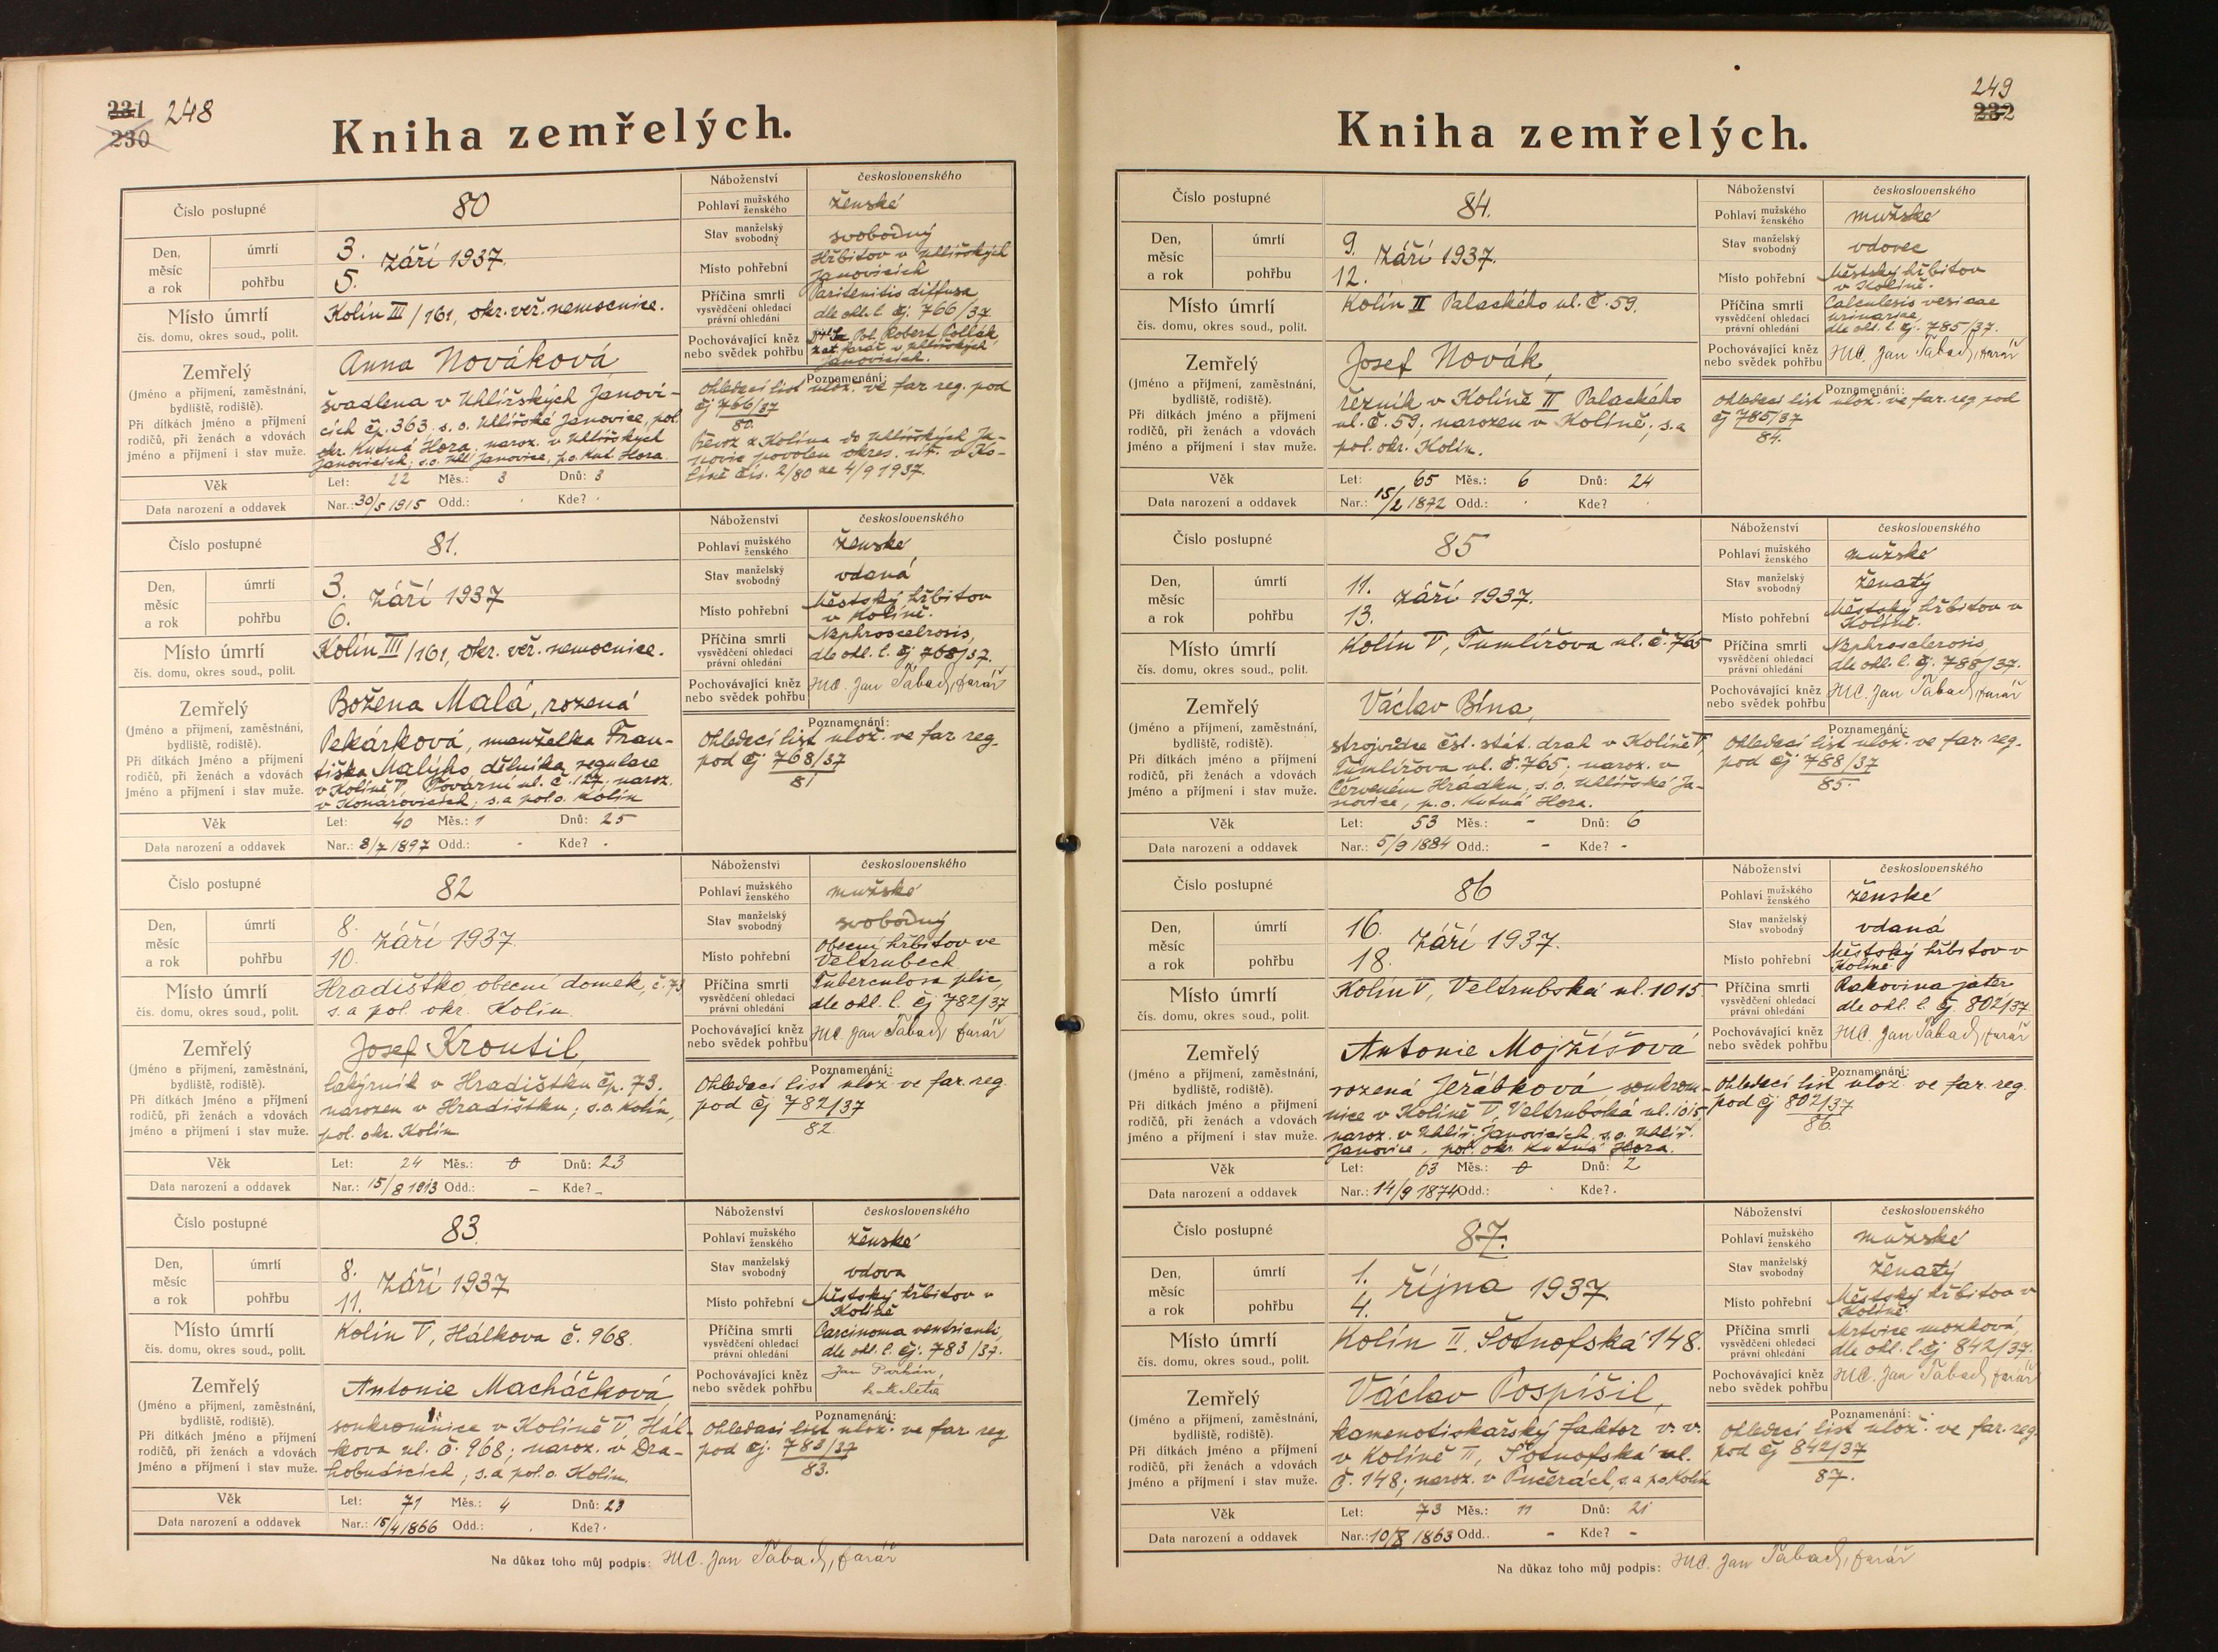 231 248
230
Kniha zemřelých.
Číslo postupné 80
Náboženství československého
Pohlaví mužského ženského ženské
Stav manželský svobodný svobodný
Den, měsíc a rok úmrtí 3. září 1937.
pohřbu 5.
Místo pohřební Hřbitov v Uhlířských
Janovicích
Místo úmrtí Kolín III/161, okr. veř. nemocnice.
čís. domu, okres soud., polit.
Příčina smrti
vysvědčení ohledací
právní ohledání
diffusa
dle ohl. l. čj. 766/37.
Pochovávající kněz
nebo svědek pohřbu
Robert Pollák
farář v Uhlířských
Janovicích.
Zemřelý
(jméno a příjmení, zaměstnání,
bydliště, rodiště).
Při dítkách jméno a příjmení
rodičů, při ženách a vdovách
jméno a příjmení i stav muže.
Anna Nováková
švadlena v Uhlířských Janovi-
cích čp. 363. s. o. Uhlířské Janovice, pol.
okr. Kutná Hora, naroz. v Uhlířských
Janovicích; s.o. Uhl. Janovice, p.o. Kut. Hora.
Poznamenání:
Ohledací list ulož. ve far. reg. pod
čj 766/37
80.
Převoz z Kolína do Uhlířských Ja-
novic povolen okres. úř. v Ko-
líně čís. 2/80 ze 4/9 1937.
Věk Let: 22 Měs.: 3 Dnů: 3
Data narození a oddavek Nar.: 30/5 1915 Odd.: Kde?
Číslo postupné 81.
Náboženství československého
Pohlaví mužského ženského ženské
Stav manželský svobodný vdaná
Den, měsíc a rok úmrtí 3. září 1937
pohřbu 6.
Místo pohřební Městský hřbitov
v Kolíně.
Místo úmrtí Kolín III/161, okr. veř. nemocnice.
čís. domu, okres soud., polit.
Příčina smrti
vysvědčení ohledací
právní ohledání
Nephroscelrosis,
dle ohl. l. čj 768/37.
Pochovávající kněz
nebo svědek pohřbu
Jan Tabach, farář
Zemřelý
(jméno a příjmení, zaměstnání,
bydliště, rodiště).
Při dítkách jméno a příjmení
rodičů, při ženách a vdovách
jméno a příjmení i stav muže.
Božena Malá, rozená
Pekárková, manželka Fran-
tiška Malýho dělníka regulace
v Kolíně V, Tovární ul. č. 127. naroz.
v Konárovicích, s.a pol.o. Kolín
Poznamenání:
Ohledací list ulož. ve far reg.
pod čj 768/37
81
Věk Let: 40 Měs.: 1 Dnů: 25
Data narození a oddavek Nar.: 8/7 1897 Odd.: Kde?
Číslo postupné 82
Náboženství československého
Pohlaví mužského ženského mužské
Stav manželský svobodný svobodný
Den, měsíc a rok úmrtí 8. září 1937.
pohřbu 10.
Místo pohřební Obecní hřbitov ve
Veltrubech
Místo úmrtí Hradištko, obecní domek, č. 73
čís. domu, okres soud., polit. s.a pol. okr. Kolín.
Příčina smrti
vysvědčení ohledací
právní ohledání
Tuberculosa plic,
dle ohl. l. čj 782/37
Pochovávající kněz
nebo svědek pohřbu
Jan Tabach farář
Zemřelý
(jméno a příjmení, zaměstnání,
bydliště, rodiště).
Při dítkách jméno a příjmení
rodičů, při ženách a vdovách
jméno a příjmení i stav muže.
Josef Kroutil,
lakýrník v Hradištku čp. 73.
narozen v Hradištku; s.o. Kolín,
pol. okr. Kolín
Poznamenání:
Ohledací list ulož ve far. reg.
pod čj 782/37
82.
Věk Let: 24 Měs.: 0 Dnů: 23
Data narození a oddavek Nar.: 15/8 1913 Odd.: – Kde? –
Číslo postupné 83.
Náboženství československého
Pohlaví mužského ženského ženské
Stav manželský svobodný vdova
Den, měsíc a rok úmrtí 8. září 1937
pohřbu 11.
Místo pohřební Městský hřbitov v
Kolíně
Místo úmrtí Kolín V, Hálkova č. 968.
čís. domu, okres soud., polit.
Příčina smrti
vysvědčení ohledací
právní ohledání
Carcinoma ventriculi,
dle ohl. l. čj. 783/37.
Pochovávající kněz
nebo svědek pohřbu
Jan
Zemřelý
(jméno a příjmení, zaměstnání,
bydliště, rodiště).
Při dítkách jméno a příjmení
rodičů, při ženách a vdovách
jméno a příjmení i stav muže.
Antonie Macháčková,
soukromnice v Kolíně V, Hál-
kova ul. č. 968; naroz. v Dra-
hobudicích, s.a pol.o. Kolín
Poznamenání:
Ohledací list ulož. ve far reg
pod čj. 783/37
83.
Věk Let: 71 Měs.: 4 Dnů: 23
Data narození a oddavek Nar.: 15/4 1866 Odd.: Kde?
Na důkaz toho můj podpis: Jan Tabach, farář
249
232
Kniha zemřelých.
Číslo postupné 84.
Náboženství československého
Pohlaví mužského ženského mužské
Stav manželský svobodný vdovec
Den, měsíc a rok úmrtí 9. září 1937.
pohřbu 12.
Místo pohřební Městský hřbitov
v Kolíně.
Místo úmrtí Kolín II Palackého ul. č. 59.
čís. domu, okres soud., polit.
Příčina smrti
vysvědčení ohledací
právní ohledání
Calculesis vesicae
urinariae,
dle ohl. l. čj. 785/37.
Pochovávající kněz
nebo svědek pohřbu
Jan Tabach, farář
Zemřelý
(jméno a příjmení, zaměstnání,
bydliště, rodiště).
Při dítkách jméno a příjmení
rodičů, při ženách a vdovách
jméno a příjmení i stav muže.
Josef Novák,
řezník v Kolíně II Palackého
ul. č. 59; narozen v Kolíně; s.a
pol. okr. Kolín.
Poznamenání:
Ohledací list ulož. ve far. reg pod
čj 785/37
84.
Věk Let: 65 Měs.: 6 Dnů: 24
Data narození a oddavek Nar.: 15/2 1872 Odd.: Kde?
Číslo postupné 85
Náboženství československého
Pohlaví mužského ženského mužské
Stav manželský svobodný ženatý
Den, měsíc a rok úmrtí 11. září 1937.
pohřbu 13.
Místo pohřební Městský hřbitov v
Kolíně.
Místo úmrtí Kolín V, Tumlířova ul. č. 765
čís. domu, okres soud., polit.
Příčina smrti
vysvědčení ohledací
právní ohledání
Nephrosclerosis
dle ohl. l. čj. 788/37.
Pochovávající kněz
nebo svědek pohřbu
Jan Tabach, farář
Zemřelý
(jméno a příjmení, zaměstnání,
bydliště, rodiště).
Při dítkách jméno a příjmení
rodičů, při ženách a vdovách
jméno a příjmení i stav muže.
Václav Bína,
strojvůdce čsl. stát. drah v Kolíně V,
Tumlířova ul. č. 765, naroz. v
Červeném Hrádku, s.o. Uhlířské Ja-
novice, p.o. Kutná Hora.
Poznamenání:
Ohledací list ulož. ve far. reg.
pod čj 788/37
85.
Věk Let: 53 Měs.: – Dnů: 6
Data narození a oddavek Nar.: 5/9 1884 Odd.: – Kde? –
Číslo postupné 86
Náboženství československého
Pohlaví mužského ženského ženské
Stav manželský svobodný vdaná
Den, měsíc a rok úmrtí 16. září 1937.
pohřbu 18.
Místo pohřební Městský hřbitov v
Kolíně
Místo úmrtí Kolín V, Veltrubská ul. 1015
čís. domu, okres soud., polit.
Příčina smrti
vysvědčení ohledací
právní ohledání
Rakovina jater
dle ohl. l. čj. 802/37
Pochovávající kněz
nebo svědek pohřbu
Jan Tabach, farář
Zemřelý
(jméno a příjmení, zaměstnání,
bydliště, rodiště).
Při dítkách jméno a příjmení
rodičů, při ženách a vdovách
jméno a příjmení i stav muže.
Antonie Mojžíšová
rozená Jeřábková, soukrom-
nice v Kolíně V, Veltrubská ul. 1015,
naroz. v Uhlíř. Janovicích, s.o. Uhlíř.
Janovice, pol. okr. Kutná Hora.
Poznamenání:
Ohledací list ulož. ve far. reg.
pod čj 802/37
86.
Věk Let: 63 Měs.: 0 Dnů: 2
Data narození a oddavek Nar.: 14/9 1874 Odd.: Kde?
Číslo postupné 87.
Náboženství československého
Pohlaví mužského ženského mužské
Stav manželský svobodný ženatý
Den, měsíc a rok úmrtí 1. října 1937.
pohřbu 4.
Místo pohřební Městský hřbitov v
Kolíně
Místo úmrtí Kolín II. Šotnofská 148.
čís. domu, okres soud., polit.
Příčina smrti
vysvědčení ohledací
právní ohledání
Mrtvice mozková
dle ohl. l. čj 842/37.
Pochovávající kněz
nebo svědek pohřbu
Jan Tabach, farář
Zemřelý
(jméno a příjmení, zaměstnání,
bydliště, rodiště).
Při dítkách jméno a příjmení
rodičů, při ženách a vdovách
jméno a příjmení i stav muže.
Václav Pospíšil,
kamenotiskařský faktor v. v.
v Kolíně II, Šotnofská ul.
č. 148; naroz. v Pučerách, s.a p.o Kolín
Poznamenání:
Ohledací list ulož. ve far. reg.
pod čj 842/37
87.
Věk Let: 73 Měs.: 11 Dnů: 21
Data narození a oddavek Nar.: 10/8 1863 Odd.. – Kde? –
Na důkaz toho můj podpis: Jan Tabach, farář